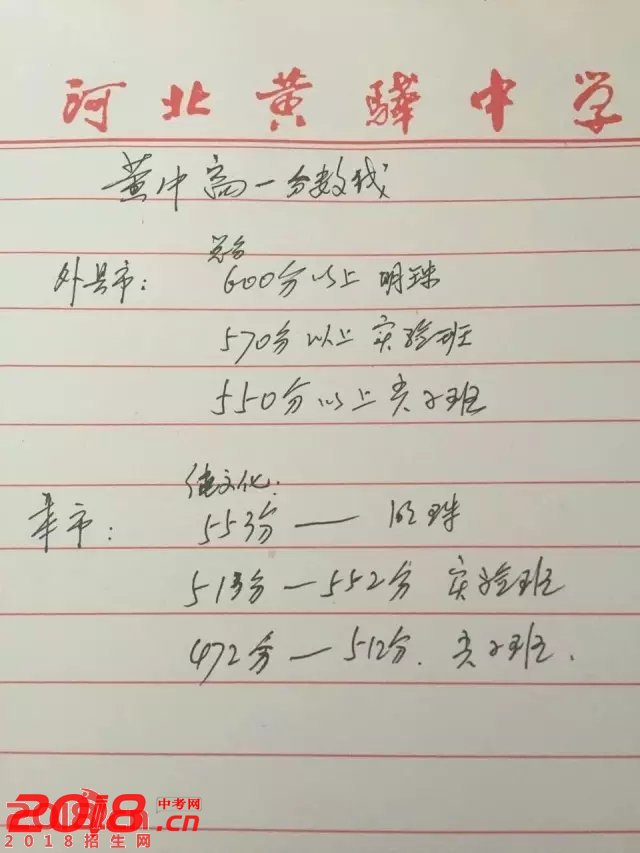 河北黄骅中学
黄中高一分数线
总分
外县市: 600分以上 明珠
570分以上 实验班
550分以上 类子班
纯文化.
本市: 553分 — 明珠
513分 — 552分 实验班
472分 — 512分. 类子班.
2018.cn
中考网
2018招生网